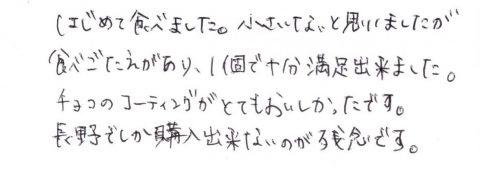 はじめて食べました。小さいなぁと思いましたが
食べごたえがあり、1個で十分満足出来ました。
チョコのコーティングがとてもおいしかったです。
長野でしか購入出来ないのが残念です。